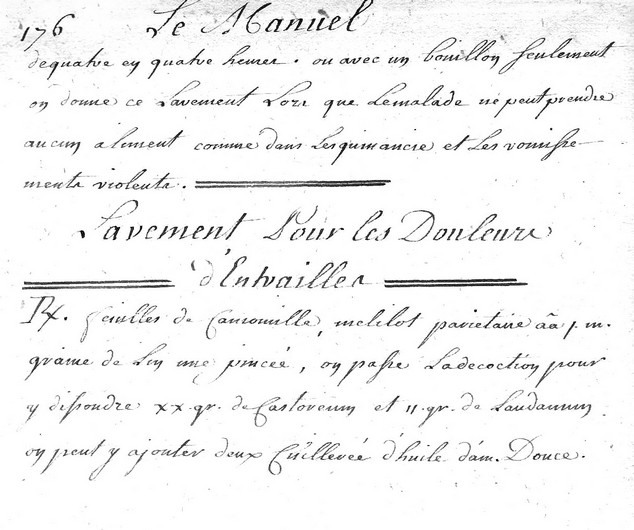 176 Le Manuel
de quatre en quatre heures. ou avec un bouillon seulement
on donne ce Lavement Lors que Lemalade ne peut prendre
aucun aliment comme dans Lesquinancie et Les vomisse-
ments violents.
Lavement Pour les Douleurs
d'Entrailles
Rx. feuilles de Camomille, melilot parietaire āā j. m.
graine de Lin une pincée, on passe Ladecoction pour
y dissoudre xx. gr. de Castoreum et 11. gr. de Laudanum
on peut y ajouter deux Cüellereé d'huile d'am. Douce.